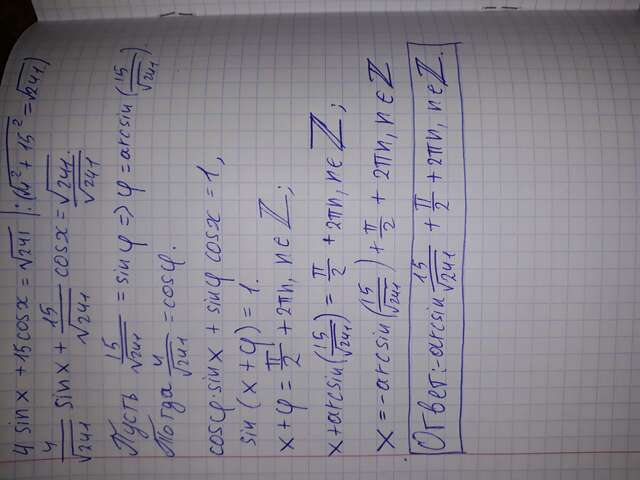 4 sin x + 15 cos x = √241 | : (√(4² + 15²) = √241)
4/√241 sin x + 15/√241 cos x = √241/√241.
Пусть 15/√241 = sin φ => φ = arcsin(15/√241)
Тогда 4/√241 = cos φ.
cos φ · sin x + sin φ cos x = 1,
sin (x + φ) = 1.
x + φ = π/2 + 2πn, n ∈ ℤ;
x + arcsin(15/√241) = π/2 + 2πn, n ∈ ℤ;
x = -arcsin(15/√241) + π/2 + 2πn, n ∈ ℤ
Ответ: -arcsin 15/√241 + π/2 + 2πn, n ∈ ℤ.